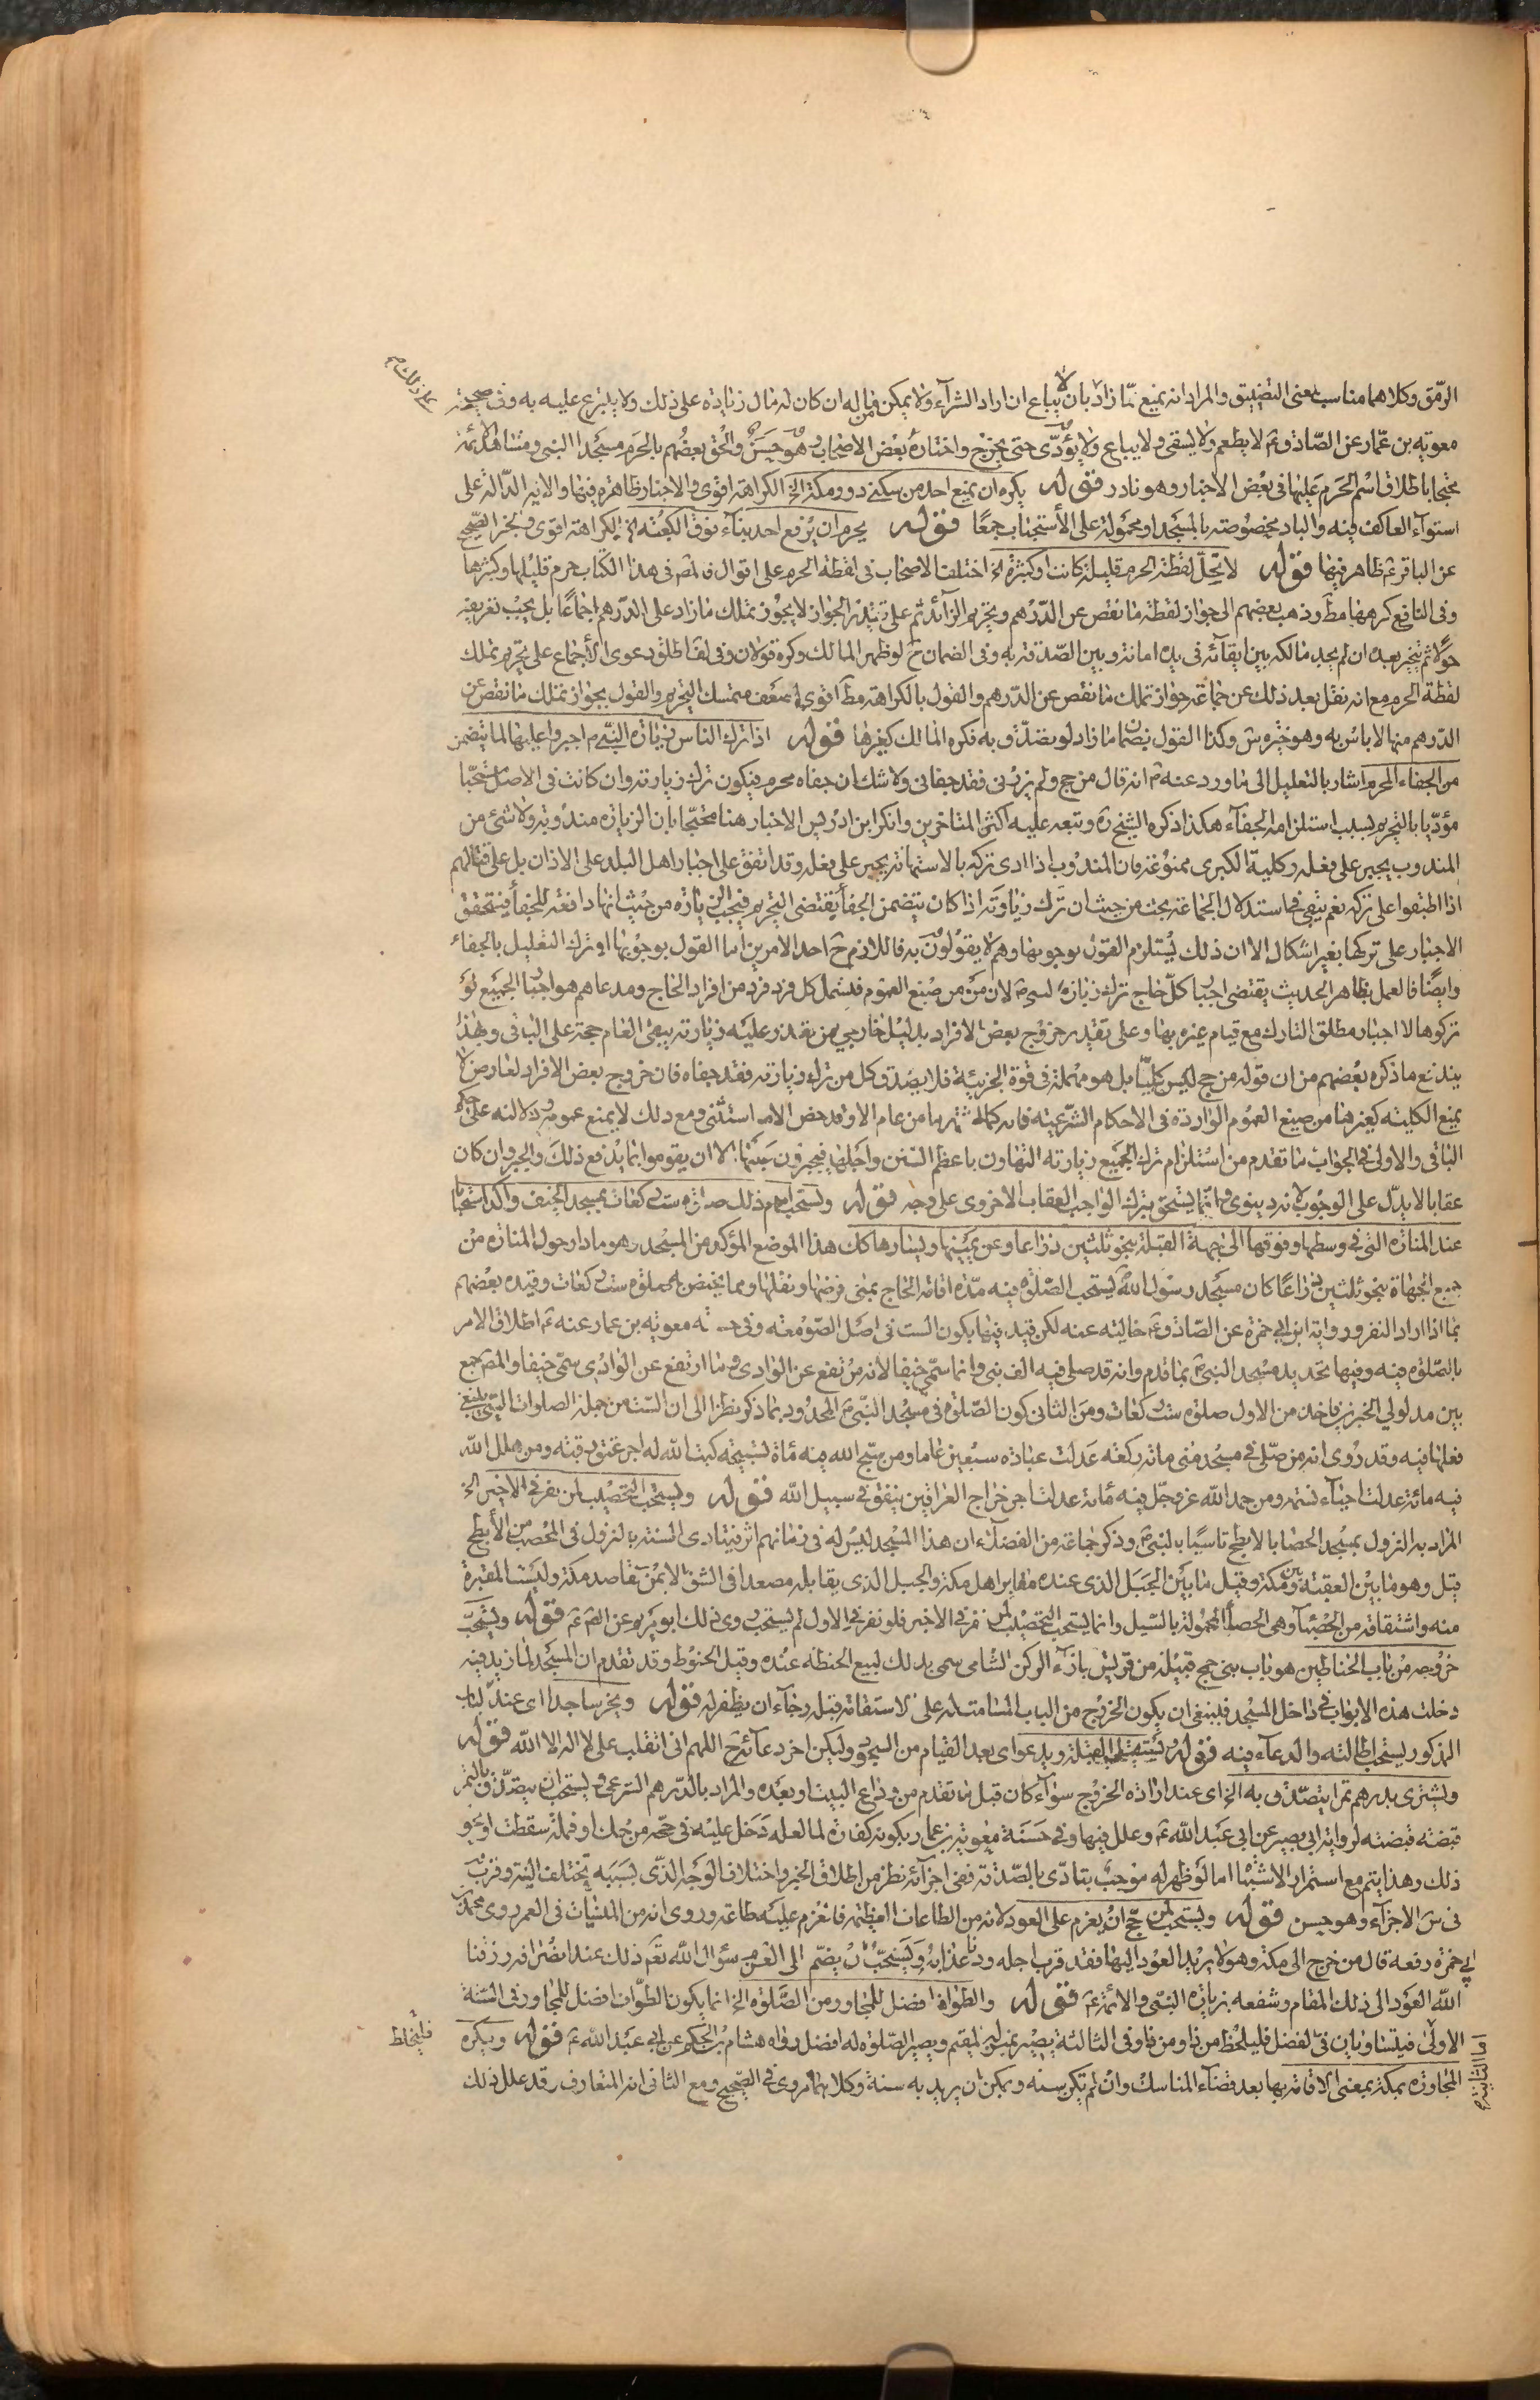 الرمق وكلاهما مناسب لمعنى التضييق والمراد انه يمنع مما زاد بان لا يباع ان اراد الشراء ولا يمكن من ماله ان كان له مال زيادة على ذلك ولا يتبرع عليه به وفى صحيحة
معوية بن عمار عن الصادق ع لا يطعم ولا يسقى ولا يباع ولا يؤدى حتى يخرج واختاره بعض الاصحاب وهو حسن والحق بعضهم بالحرم مسجد النبى ومشاهد الائمة
محتجا باطلاق اسم الحرم عليها فى بعض الاخبار وهو نادر قوله يكره ان يمنع احد من سكنى دور مكة الخ الكراهة اقوى والاخبار ظاهرة فيها والاية الدالة على
استواء العاكف فيه والباد مخصوصة بالمسجد او محمولة على الاستحباب جمعا قوله يحرم ان يرفع احد بناء فوق الكعبة الخ الكراهة اقوى وخبر الصحيح
عن الباقر ع ظاهر فيها قوله لا تحل لقطة الحرم قليلة كانت او كثيرة الخ اختلف الاصحاب فى لقطة الحرم على اقوال فالمص فى هذا الكتاب حرم قليلها وكثيرها
وفى النافع كرهها مط وذهب بعضهم الى جواز لقطة ما نقص عن الدرهم وتحريم الزائد ثم على تقدير الجواز لا يجوز تملك ما زاد على الدرهم اجماعا بل يجب تعريفه
حولا ثم يتخير بعده ان لم يجد مالكه بين ابقائه فى يده امانة وبين الصدقة به وفى الضمان ح لو ظهر المالك وكره قولان وفى لف اطلق دعوى الاجماع على تحريم تملك
لقطة الحرم مع انه نقل بعد ذلك عن جماعة جواز تملك ما نقص عن الدرهم والقول بالكراهة مط اقوى لضعف متمسك التحريم والقول بجواز تملك ما نقص عن
الدرهم منها لا باس به وهو خيرة س وكذا القول بضمان ما زاد لو تصدق به فكره المالك كغيرها قوله اذا ترك الناس زيارة النبى ص اجبروا عليها لما يتضمن
من الجفاء المحرم اشار بالتعليل الى ما ورد عنه ص انه قال من حج ولم يزرنى فقد جفانى ولا شك ان جفاه محرم فيكون ترك زيارته وان كانت فى الاصل مستحبا
مؤديا بالتحريم بسبب استلزامه الجفاء هكذا ذكره الشيخ ره وتبعه عليه اكثر المتاخرين وانكر ابن ادريس الاجبار هنا محتجا بان الزيارة مندوبة ولا شئ من
المندوب يجبر على فعله وكلية الكبرى ممنوعة فان المندوب اذا ادى تركه بالاستهانة يجبر على فعله وقد اتفق على اجبار اهل البلد على الاذان بل على قتالهم
اذا اطبقوا على تركه نعم يبقى فى استدلال الجماعة بحث من حيث ان ترك زيارته اذا كان يتضمن الجفاء يقتضى التحريم فيجب الزيارة من حيث انها دافعة للجفاء فيتحقق
الاجبار على تركها بغير اشكال الا ان ذلك يستلزم القول بوجوبها وهم لا يقولون به فاللازم ح احد الامرين اما القول بوجوبها او ترك التعليل بالجفاء
وايضا فالعمل بظاهر الحديث يقتضى اجبار كل حاج ترك زيارة النبى ص لان من من صيغ العموم فيشمل كل فرد فرد من افراد الحاج ومدعاهم هو اجبار الجميع لو
تركوها لا اجبار مطلق التارك مع قيام غيره بها وعلى تقدير خروج بعض الافراد بدليل خارجى من تعذر عليه زيارته يبقى العام حجة على الباقى وبهذا
يندفع ما ذكره بعضهم من ان قوله من حج ليس كليا بل هو مهملة فى قوة الجزئية فلا يصدق كل من ترك زيارته فقد جفاه فان خروج بعض الافراد لعارض لا
يمنع الكلية كغيرها من صيغ العموم الواردة فى الاحكام الشرعية فانه كما اشتهر ما من عام الا وقد خص الا ما استثنى ومع ذلك لا يمنع عمومه ودلالته على حكم
الباقى والاولى فى الجواب ما تقدم من استلزام ترك الجميع زيارته التهاون باعظم السنن واجلها فيجبرون عليها الا ان يقوموا بما يدفع ذلك والجبر وان كان
عقابا لا يدل على الوجوب لانه دنيوى وانما يستحق بترك الواجب العقاب الاخروى على وجه قوله ويستحب امام ذلك صلوة ست ركعات بمسجد الخيف واكد استحبابا
عند المنارة التى فى وسطها وفوقها الى جهة القبلة بنحو ثلثين ذراعا وعن يمينها ويسارها كك هذا الموضع المؤكد من المسجد وهو ما دار حول المنارة من
جميع الجهات بنحو ثلثين ذراعا كان مسجد رسول الله يستحب الصلوة فيه مدة اقامة الحاج بمنى فرضها ونفلها ومما يختص به صلوة ست ركعات وقيده بعضهم
بما اذا اراد النفر ورواية ابن ابى حمزة عن الصادق ع خالية عنه لكن قيد فيها بكون الست فى اصل الصومعة وفى حسنة معوية بن عمار عنه ع اطلاق الامر
بالصلوة فيه وفيها تحديد مسجد النبى ص بما تقدم وانه قد صلى فيه الف نبى وانما سمى خيفا لانه مرتفع عن الوادى وما ارتفع عن الوادى سمى خيفا والمص جمع
بين مدلولى الخبرين فاخذ من الاول صلوة ست ركعات ومن الثانى كون الصلوة فى مسجد النبى ص المحدود بما ذكر نظرا الى ان الست من جملة الصلوات التى ينبغى
فعلها فيه وقد روى انه من صلى فى مسجد منى مائة ركعة عدلت عبادة سبعين عاما ومن سبح الله فيه مائة تسبيحة كتب الله له اجر عتق رقبة ومن هلل الله
فيه مائة عدلت احياء نسمة ومن حمد الله عز وجل فيه مائة عدلت اجر خراج العراقين ينفق فى سبيل الله قوله ويستحب التحصيب لمن نفر فى الاخير الخ
المراد به النزول بمسجد الحصبا بالابطح تاسيا بالنبى ص وذكر جماعة من الفضلاء ان هذا المسجد ليس له فى زمانهم اثر فيتادى السنة بالنزول فى المحصب من الابطح
قيل وهو ما بين العقبة وبين مكة وقيل ما بين الجبل الذى عنده مقابر اهل مكة والجبل الذى يقابله مصعدا فى الشق الايمن لقاصد مكة وليست المقبرة
منه واشتقاقه من الحصباء وهى الحصا المحمولة بالسيل وانما يستحب التحصيب لمن نفر فى الاخير فلو نفر فى الاول لم يستحب روى ذلك ابو مريم عن الص ع قوله ويستحب
خروجه من باب الحناطين هو باب بنى جمح قبيلة من قريش بازاء الركن الشامى سمى بذلك لبيع الحنطة عنده وقيل الحنوط وقد تقدم ان المسجد لما زيد فيه
دخلت هذه الابواب فى داخل المسجد فينبغى ان يكون الخروج من الباب المسامت له على الاستقامة قبله رجاء ان يظفر به قوله ويخر ساجدا اى عند الباب
المذكور يستحب اطالته والدعاء فيه قوله ويستقبل القبلة ويدعو اى بعد القيام من السجود وليكن اخر دعائه ح اللهم انى انقلب على لا اله الا الله قوله
ويشترى بدرهم تمرا يتصدق به الخ اى عند ارادة الخروج سواء كان قبل ما تقدم من وداع البيت او بعده والمراد بالدرهم الشرعى ويستحب ان يتصدق بالتمر
قبضة قبضة لرواية ابى بصير عن ابى عبد الله ع وعلل فيها وفى حسنة معوية بن عمار بكونه كفارة لما لعله دخل عليه فى حجه من حك او قملة سقطت او نحو
ذلك وهذا يتم مع استمرار الاشتباه اما لو ظهر له موجب يتادى بالصدقة ففى اجزائه نظر من اطلاق الخبر واختلاف الوجه الذى بسببه تختلف النية وقرب
فى س الاجزاء وهو حسن قوله ويستحب لمن حج ان يعزم على العود لانه من الطاعات العظيمة فالعزم عليه طاعة وروى انه من المنسيات فى العمر روى محمد بن
ابى حمزة رفعه قال من خرج الى مكة وهو لا يريد العود اليها فقد قرب اجله ودنا عذابه ويستحب ان يضم الى العزم سؤال الله تعالى ذلك عند انصرافه رزقنا
الله العود الى ذلك المقام وشفعه بزيارة النبى والائمة ع قوله والطواف افضل للمجاور من الصلوة الخ انما يكون الطواف افضل للمجاور فى السنة
الاولى فيتساويان فى الفضل فليلحظ من ذا ومن ذا وفى الثالثة يصير بمنزلة المقيم ويصير الصلوة له افضل رواه هشام بن الحكم عن ابى عبد الله ع قوله ويكره
المجاورة بمكة بمعنى الاقامة بها بعد قضاء المناسك وان لم تكن سنة ويمكن ان يريد به سنة وكلاهما مروى فى الصحيح ومع الثانى انه المتعارف وقد علل ذلك
على ذلك
اما الثانية
فليخلط